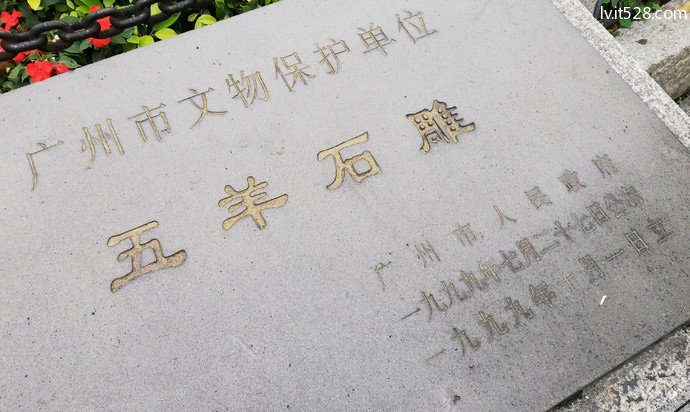 lvit528.com
广州市文物保护单位
五羊石雕
广州市人民政府
一九九九年七月二十七日公布
一九九九年十月一日立